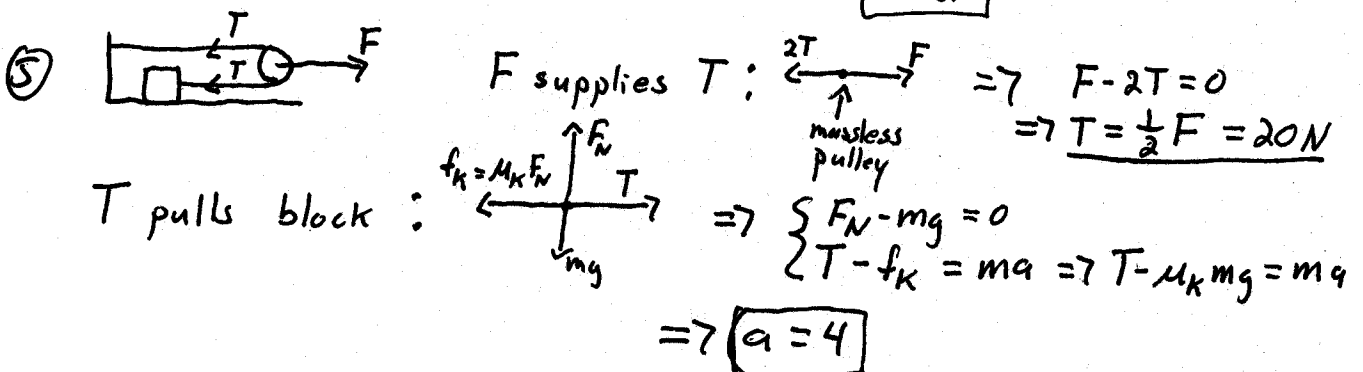 ⑤ T T F
F supplies T : 2T F => F - 2T = 0
massless pulley => T = ½ F = 20 N
T pulls block : f_K = μ_K F_N F_N T mg => { F_N - mg = 0
T - f_K = ma => T - μ_K mg = ma
=> a = 4